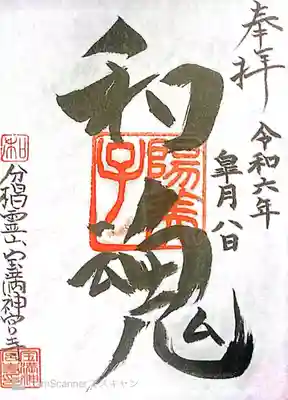 奉拝
令和六年
皐月八日
和魂
和
霊山宝満神宮寺
CamScanner でスキャン